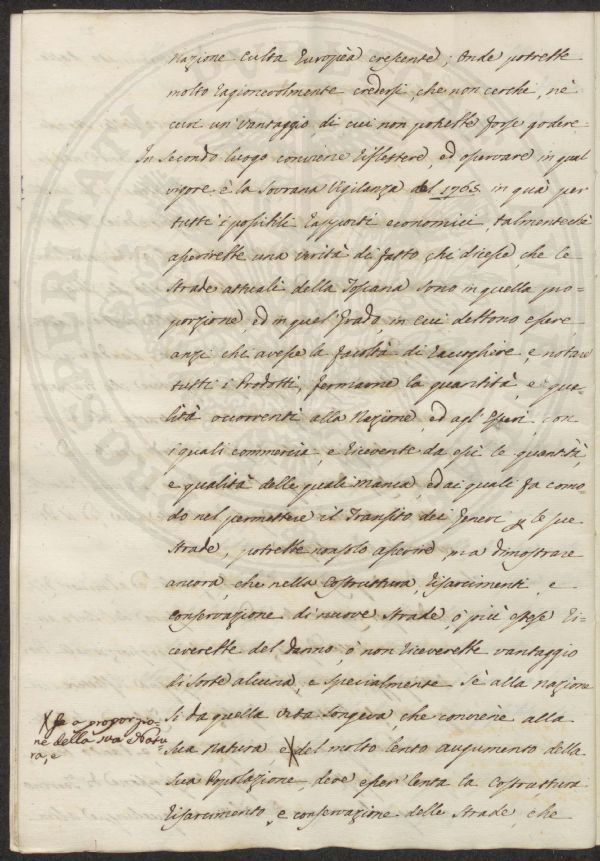 nazione culta Europèa crescente; Onde potrebbe
molto ragionevolmente credersi, che non cerchi, nè
curi un' vantaggio di cui non potesse forse godere
In secondo luogo conviene riflettere, ed osservare in qual
vigore è la Sovrana Vigilanza del 1765. in quà per
tutti i possibili rapporti economici, talmentechè
asserirebbe una verità di fatto, chi dicesse, che le
Strade attuali della Toscana sono in quella pro=
porzione, ed in quel' Grado, in cui debbono essere
anzi chi avesse la facoltà di raccogliere, e notare
tutti i Prodotti, fermarne la quantità, e qua=
lità occorrenti alla Nazione, ed agl' Esteri, con
i quali commercia, e ricevente da essi le quantità,
e qualità delle quali manca, ed ai quali fa como=
do nel permettere il Transito dei Generi le sue
Strade, potrebbe non solo asserire, ma dimostrare
ancora, che nella Costruttura, risarcimenti, e
conservazione di nuove Strade, ò più estese ri=
ceverebbe del danno, ò non riceverebbe vantaggio
di sorte alcuna, e specialmente Sè alla nazione
Si da quella vita longeva che conviene alla
X Se a proporzio=
ne della sua Natu
ra, e
sua natura, e X del molto lento augumento della
sua Popolazione, deve esser' lenta la Costruttura
risarcimento, e conservazione delle Strade, che